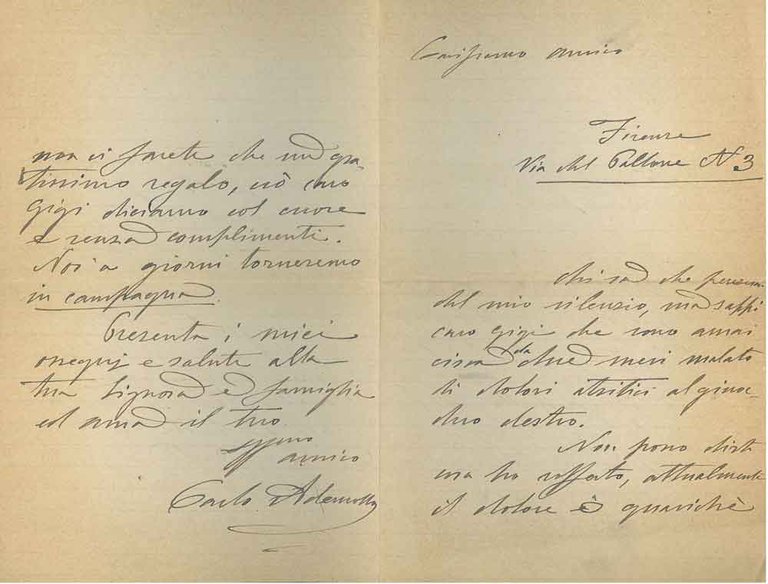 Carissimo amico
Firenze
Via del Pallone N. 3
Chi sa che penserai
del mio silenzio, ma sappi
caro Gigi che sono omai
circa da due mesi malato
di dolori atritici al ginoc-
chio destro.
Non posso dirti
cosa ho sofferto, attualmente
il dolore è quasichè
non ci farete che un gra-
tissimo regalo, ciò caro
Gigi diciamo col cuore
e senza complimenti.
Noi a giorni torneremo
in campagna.
Presenta i miei
ossequj e saluti alla
tua Signora e famiglia
ed ama il tuo
affmo
amico
Carlo Ademollo